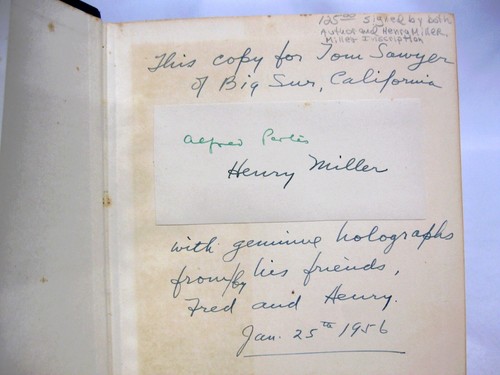 125.00 signed by both
Author and Henry Miller
Miller Inscription
This copy for Tom Sawyer
of Big Sur, California
Alfred Perlès
Henry Miller
with genuine holographs
from/by his friends,
Fred and Henry.
Jan. 25th 1956